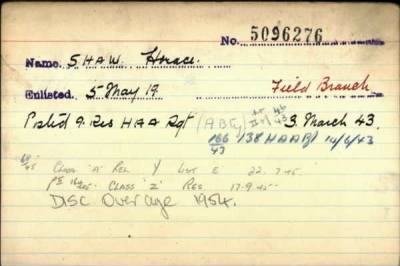 No. 5096276
Name. SHAW. Horace.
Enlisted. 5 May 19 Field Branch
Posted 9. Res HAA Rgt (ABG) 3 March 43.
166/43 138 HAA R 10/6/43
CLASS 'A' REL Y LIST E 22.7.45
CLASS 'Z' RES 17-9-45
DISC Over age 1954.